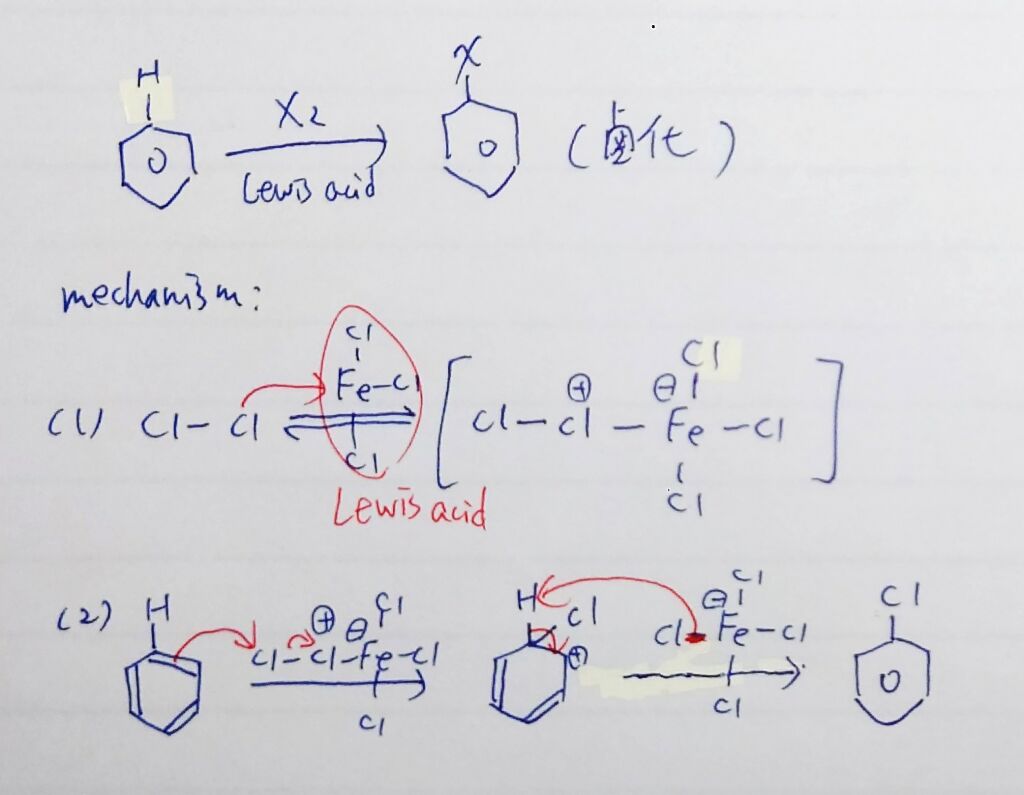 H X
X2
Lewis acid
(卤化)
mechanism:
Cl
Fe-Cl
Cl
(1) Cl-Cl
Lewis acid
Cl
⊕ ⊖
Cl-Cl-Fe-Cl
Cl
(2) H
⊕ ⊖ Cl
Cl-Cl-Fe-Cl
Cl
H Cl
⊕
⊖ Cl
Cl-Fe-Cl
Cl
Cl